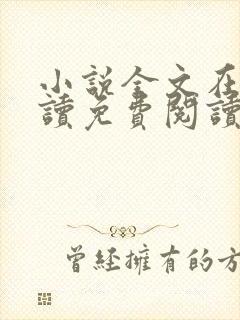 小說全文在
讀免費閱讀
曾經擁有的方